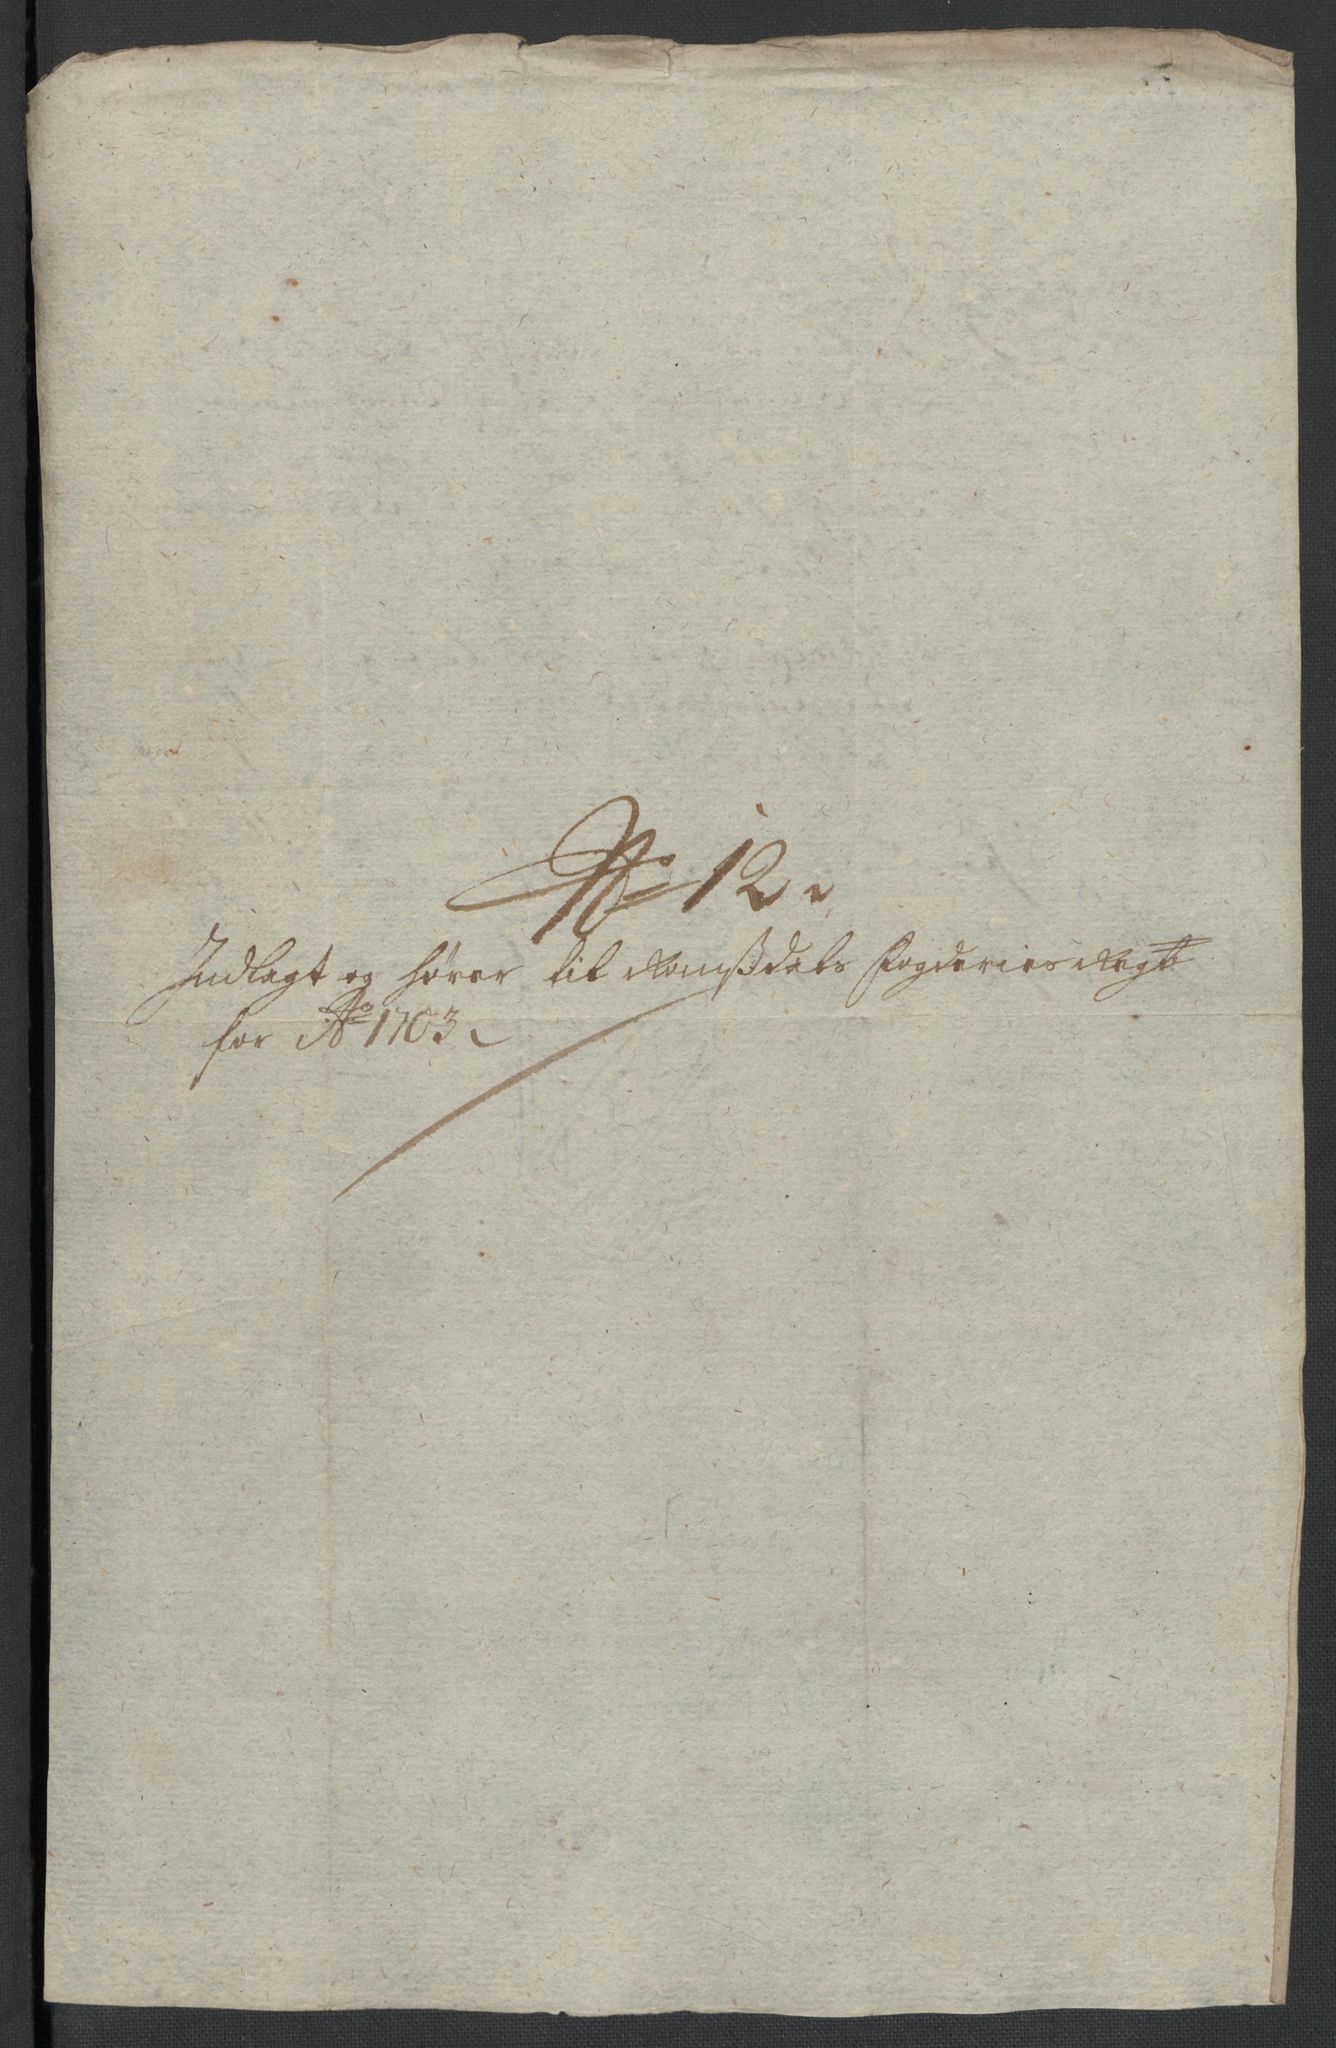 No 12.
Indlagt og hører til Romßdals Fogderies Regt
for Ao 1703